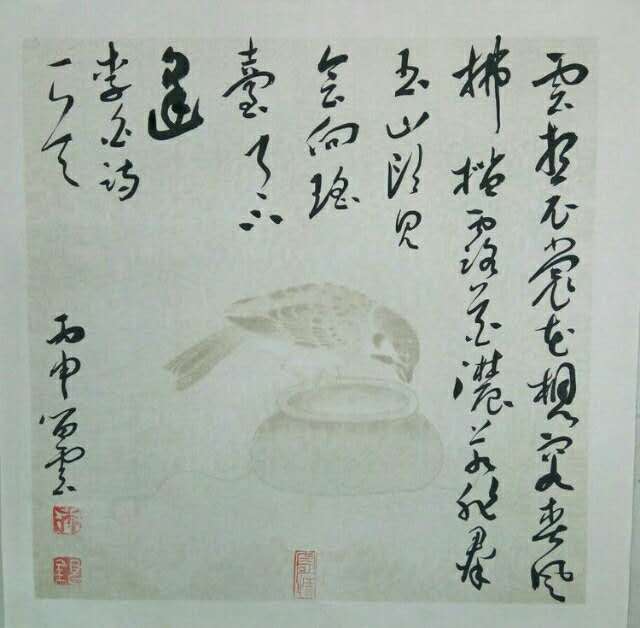 雲想衣裳花想容春風
拂檻露華濃若非群
玉山頭見
會向瑤
臺月下
逢
李白詩
丙申